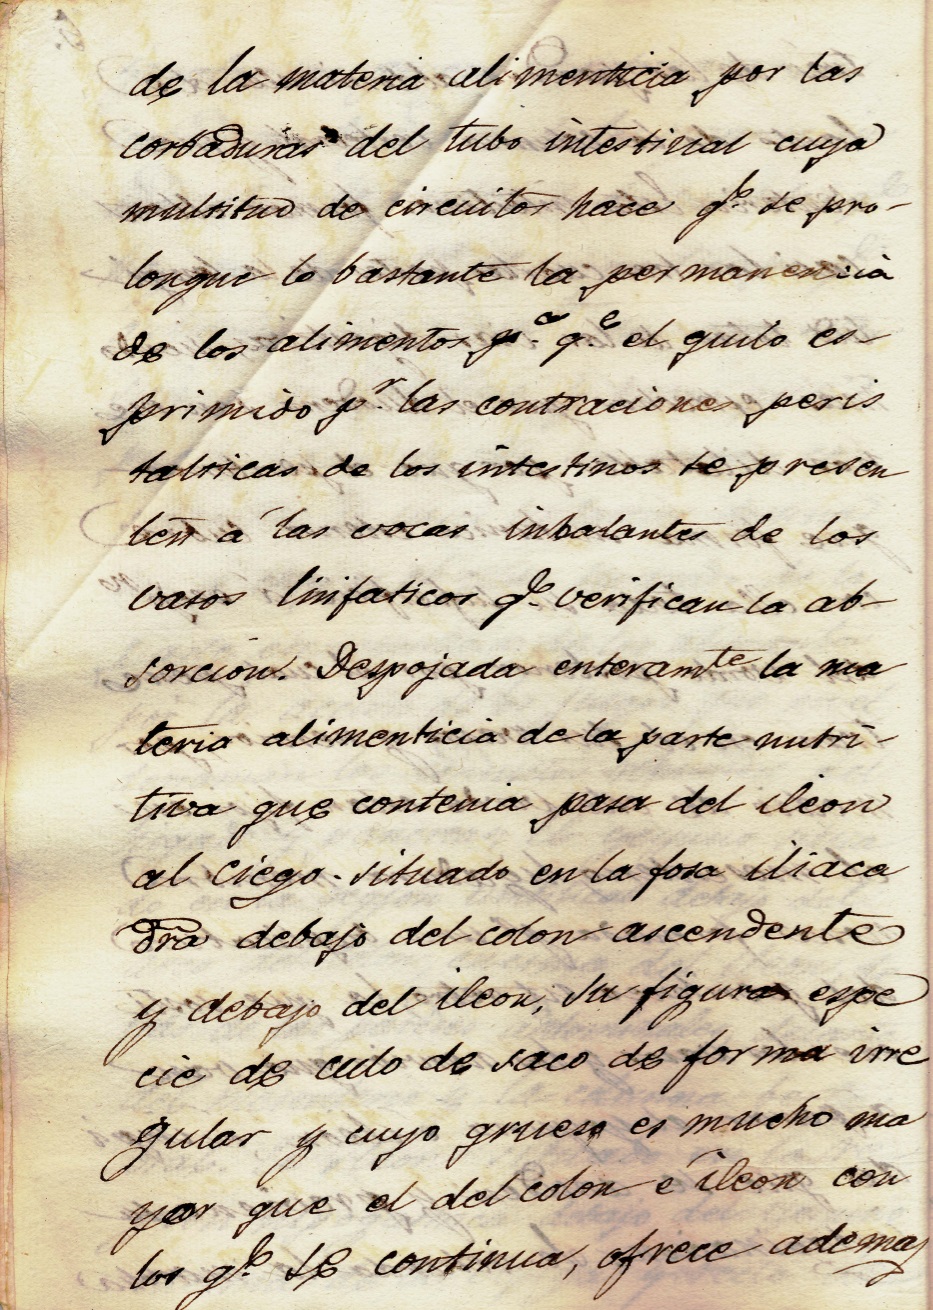 de la materia alimenticia por las
corbaduras del tubo intestinal cuya
multitud de circuitos hace q.e se pro-
longue lo bastante la permanencia
de los alimentos p.a q.e el quilo es-
primido p.r las contraciones peris
talticas de los intestinos se presen
ten á las vocas inhalantes de los
vasos linfaticos q.e verifican la ab-
sorcion. Despojada enteramte la ma
teria alimenticia de la parte nutri-
tiva que contenia pasa del ileon
al ciego. situado en la fosa iliaca
dra debajo del colon ascendente
y debajo del ileon, su figura espe
cie de culo de saco de forma irre
gular y cuyo grueso es mucho ma
yor que el del colon é ileon con
los q.e se continua, ofrece ademas